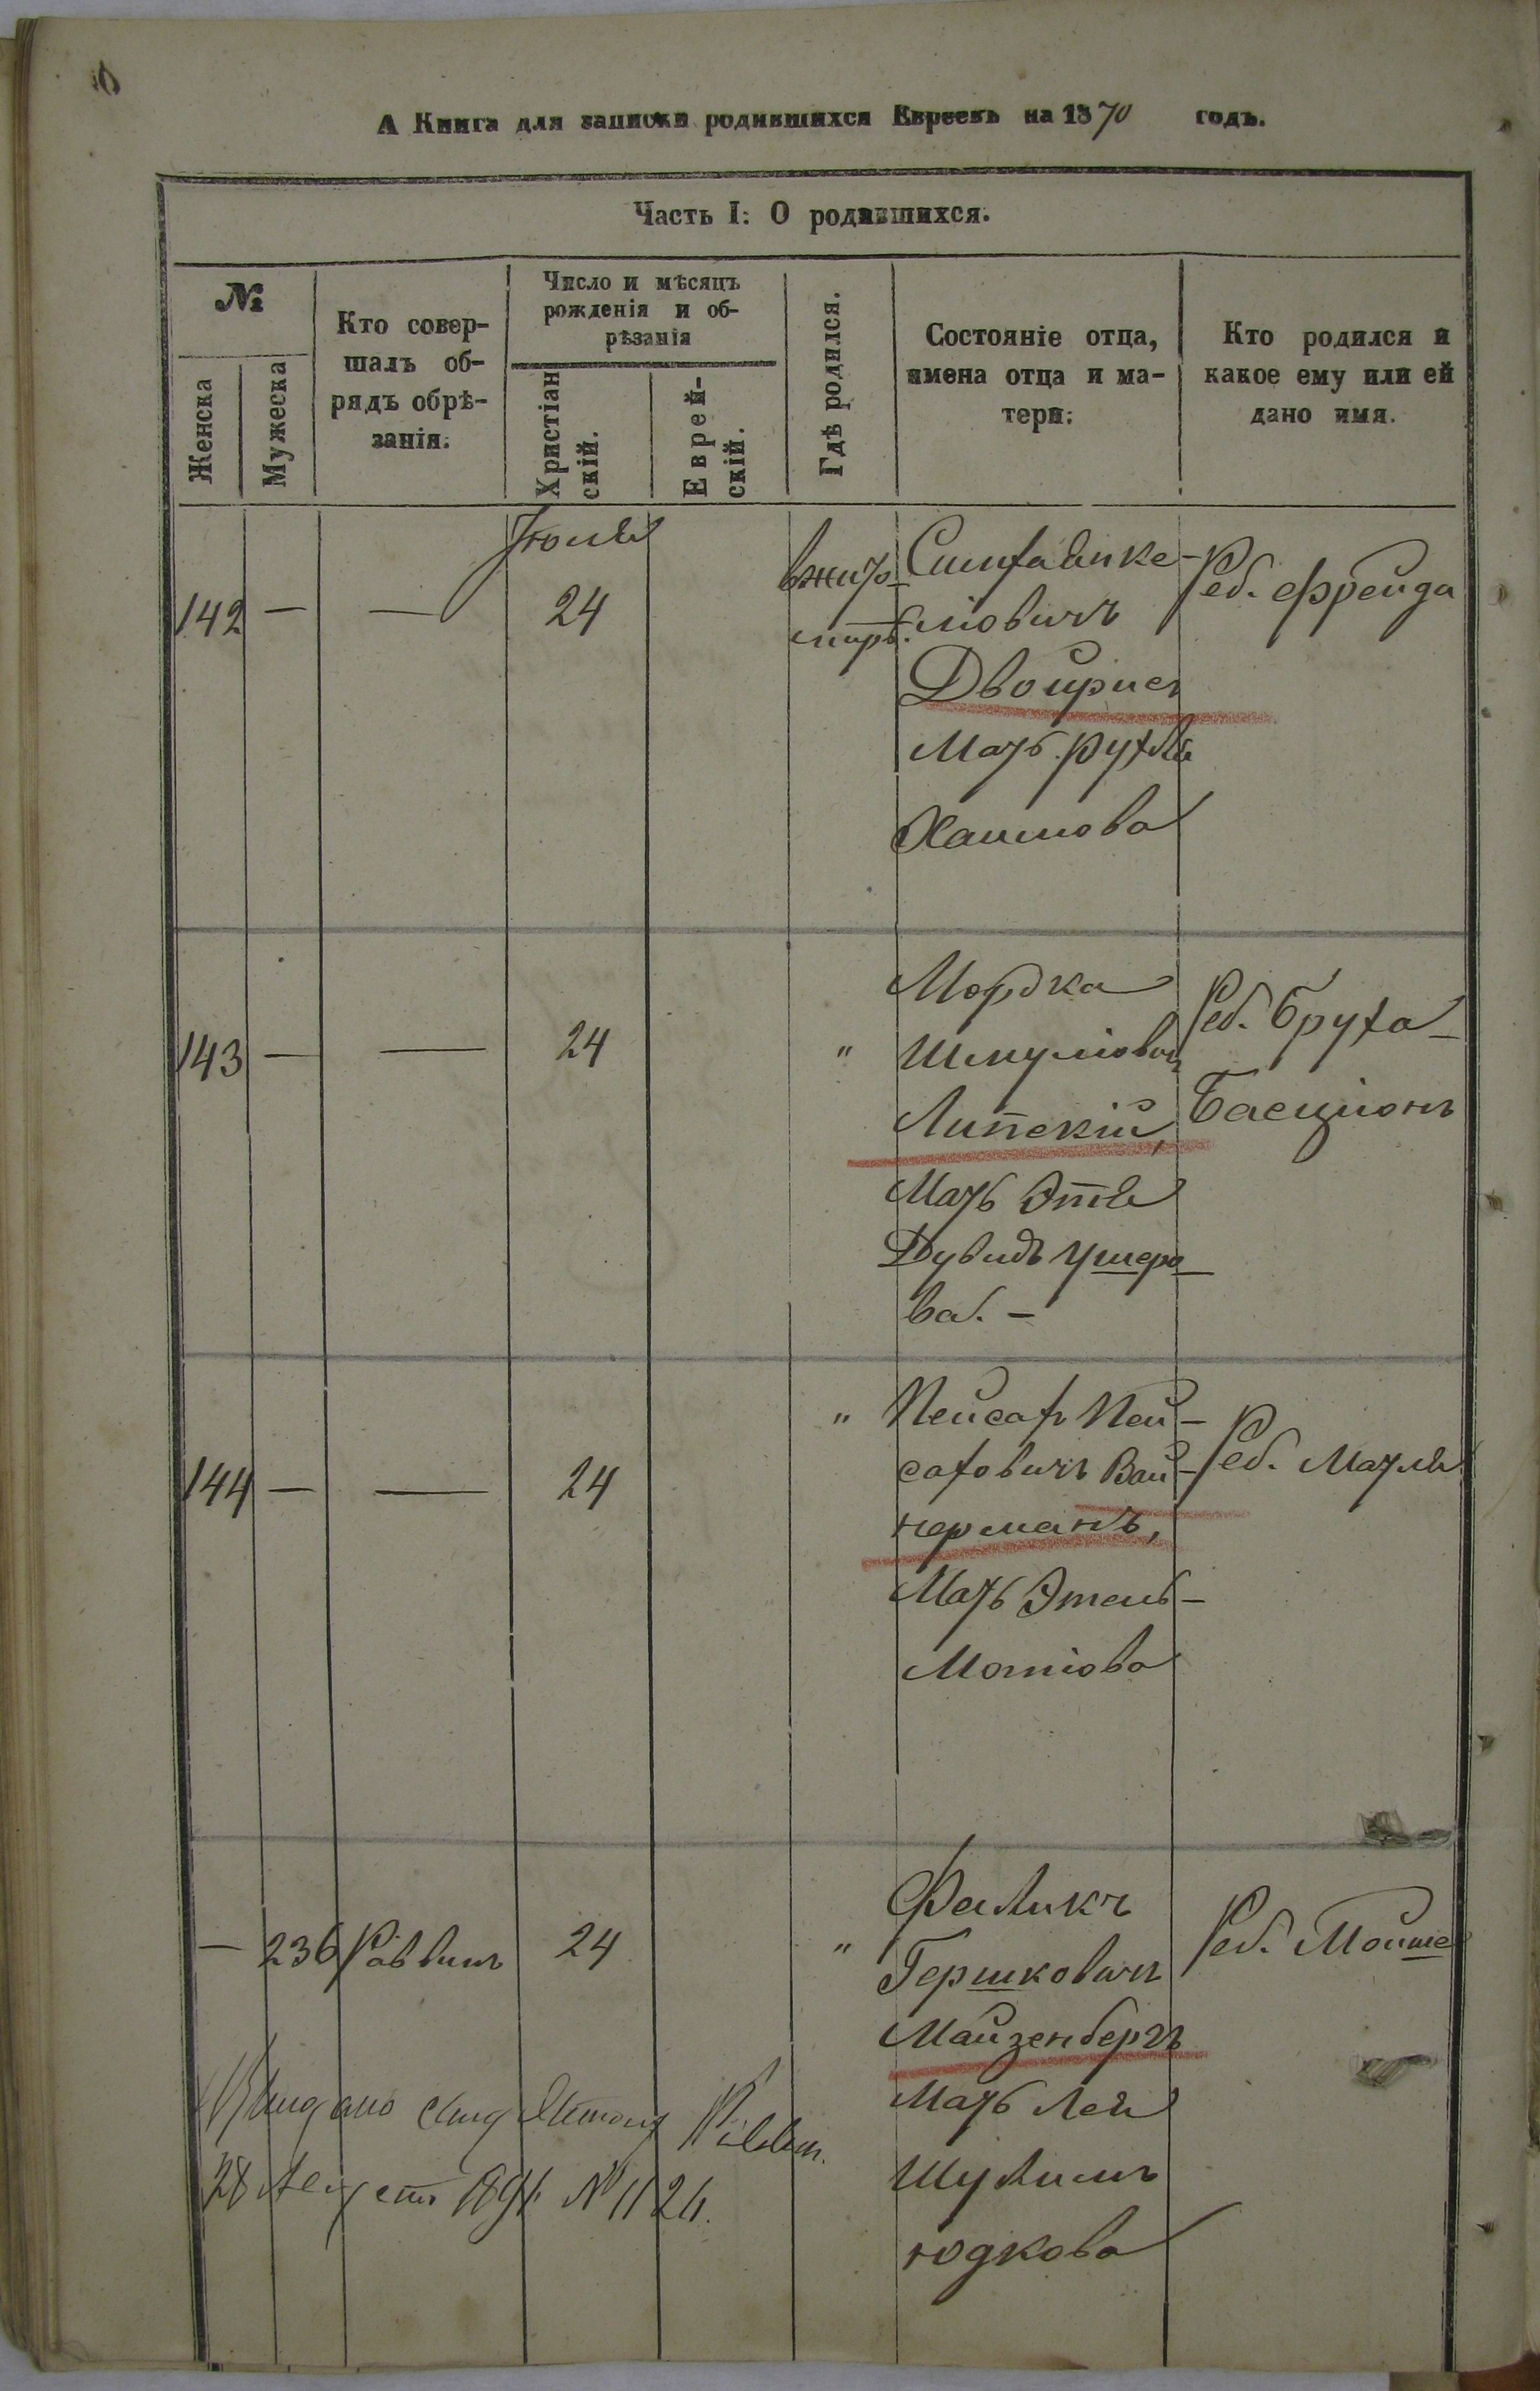 А Книга для записки родившихся Евреевъ на 1870 годъ.
Часть I: О родившихся.
№
Женска
Мужеска
Кто совер-
шалъ об-
рядъ обрѣ-
занія.
Число и мѣсяцъ
рожденія и об-
рѣзанія
Христіан
скій.
Еврей-
скій.
Гдѣ родился.
Состояніе отца,
имена отца и ма-
тери.
Кто родился и
какое ему или ей
дано имя.
Іюля
142 — — 24
вжито-
миръ.
Симха Анке-
ліовичъ
Двойрисъ
Мать Рухля
Хаимова
Реб. Фрейда
143 — — 24 "
Мордка
Шмуліовичъ
Липскій,
Мать Этя
Дувидъ Ушеро
ва. —
Реб. Бруха-
Басціонъ
144 — — 24 "
Пейсахъ Пей-
саховичъ Вай-
нерманъ,
Мать Этель-
Мотіова
Реб. Матля
— 236 Раввинъ 24 "
Фаликъ
Гершковичъ
Майзенбергъ
Мать Лея
Шулимъ
юдкова
Реб. Мойше
Выдано
28 Августа 1891. №